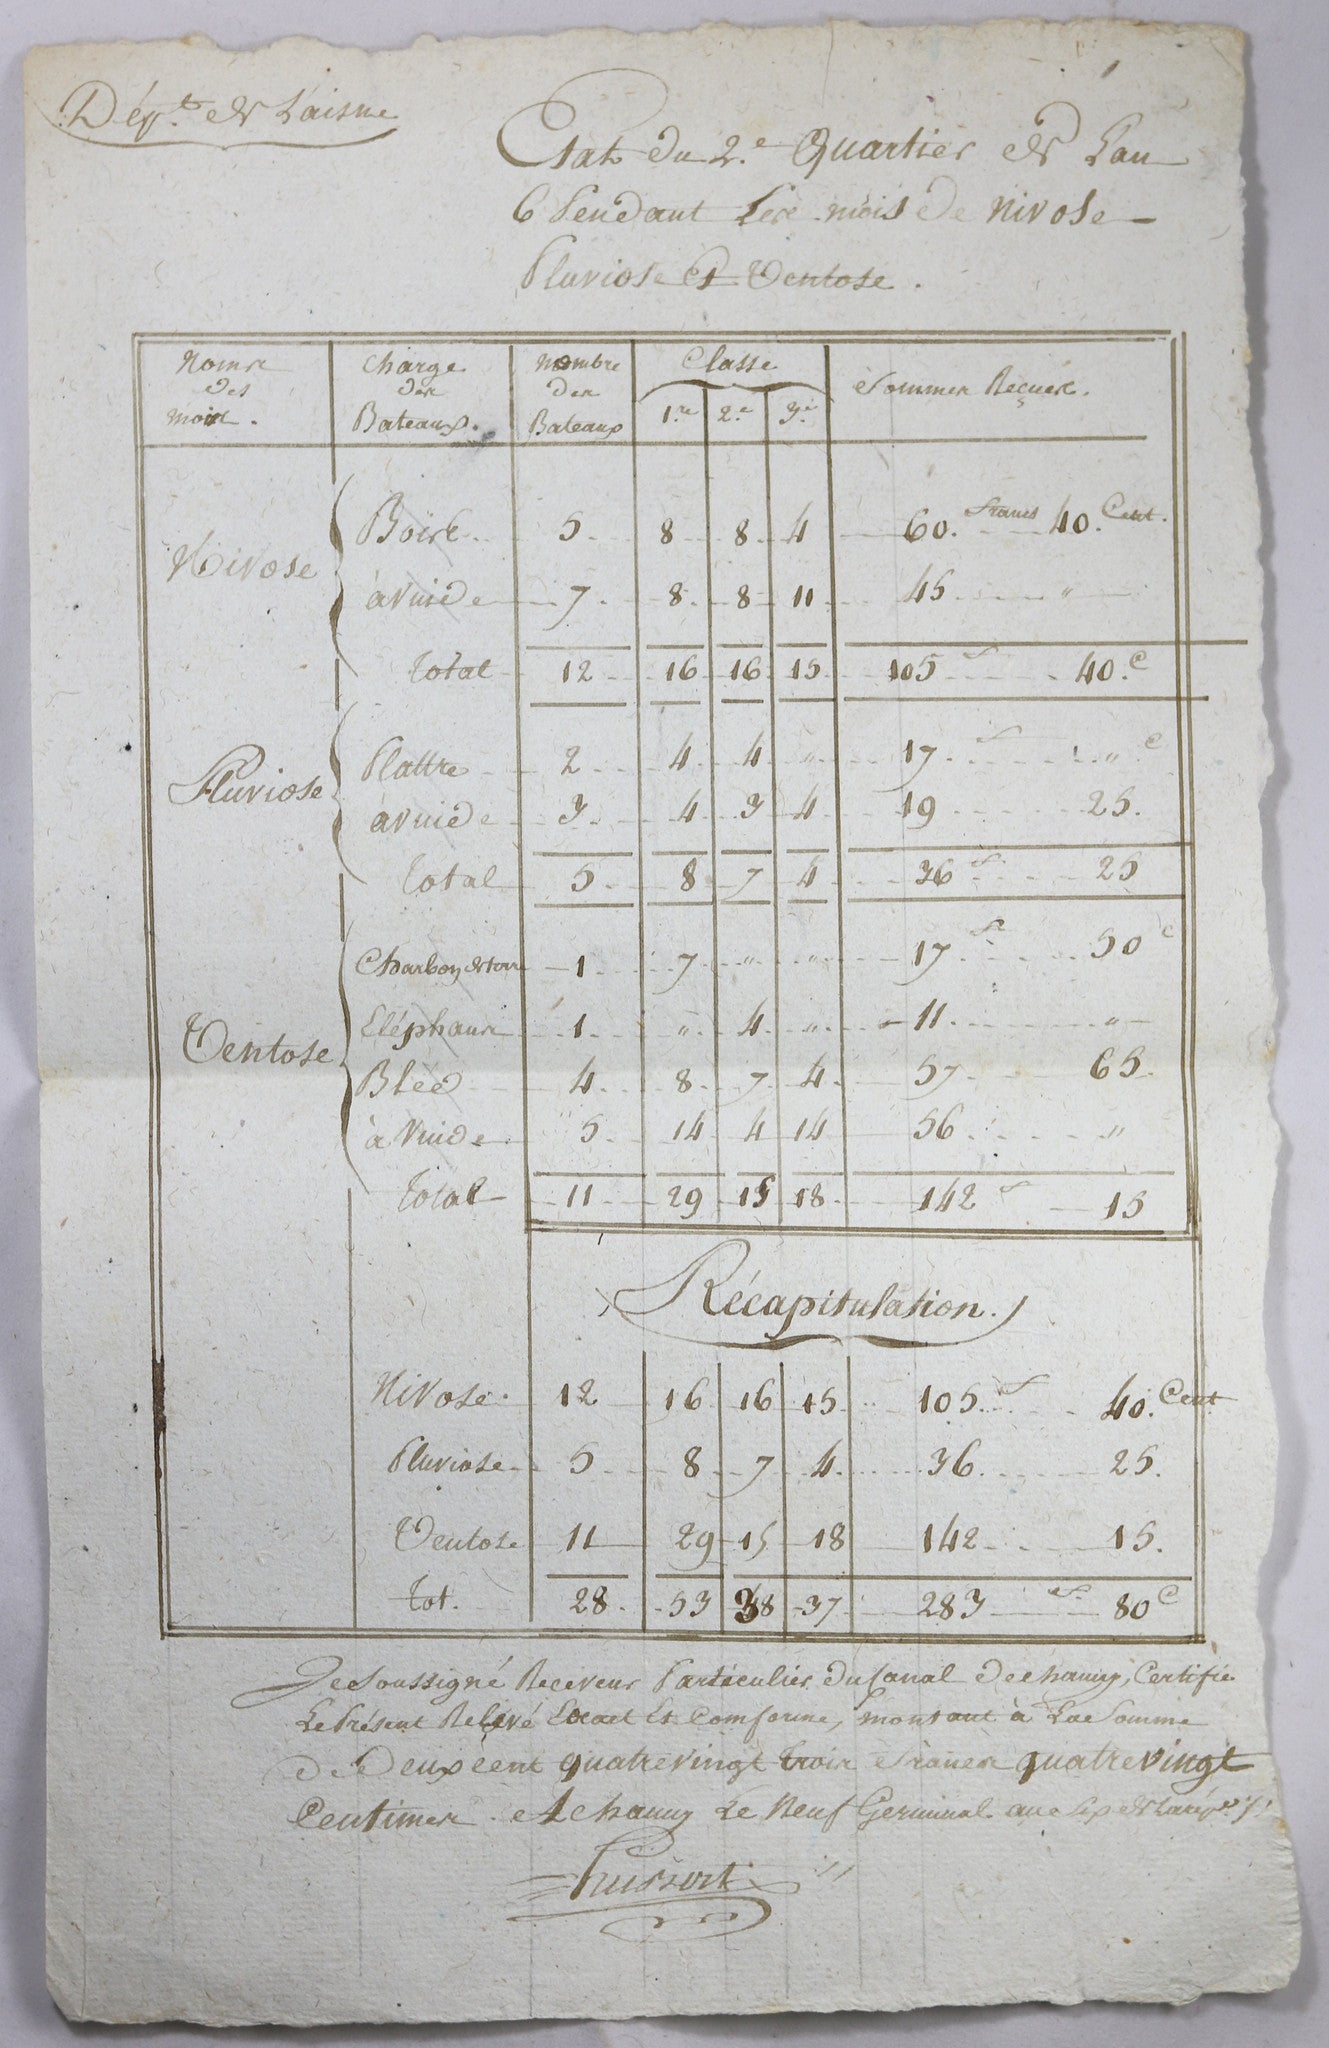 Dép.t de L'aisne
Etat du 2.e Quartier de L'an
6 Pendant Les mois de Nivose
Pluviose Et Ventose.
Noms des mois. Charge des Bateaux. Nombre des Bateaux Classe 1.re 2.e 3.e Sommes Reçues.
Nivose
Bois 5 8 8 4 60. francs 40. Cent.
à vuide 7 8 8 11 45 "
Total 12 16 16 15 105 f 40.c
Pluviose
Plattre 2 4 4 " 17 f " c
à vuide 3 4 3 4 19 25.
Total 5 8 7 4 36 f 25
Ventose
Charbon de terre 1 7 " " 17 f 50 c
Eléphans 1 " 4 " 11 "
Bléd 4 8 7 4 57 65.
à Vuide 5 14 4 14 56 "
Total 11 29 15 18 142 f 15
Récapitulation.
Nivose 12 16 16 15 105 f 40. Cent
Pluviose 5 8 7 4 36 25.
Ventose 11 29 15 18 142 15.
Tot. 28 53 38 37 283 f 80 c
Je Soussigné Receveur Particulier du Canal de chauny, Certifie
Le Présent Relevé Exact Et Comforme, montant à La Somme
de Deux cent quatre vingt trois francs quatre vingt
Centimes. A chauny Le Neuf Germinal an Six de La rép.